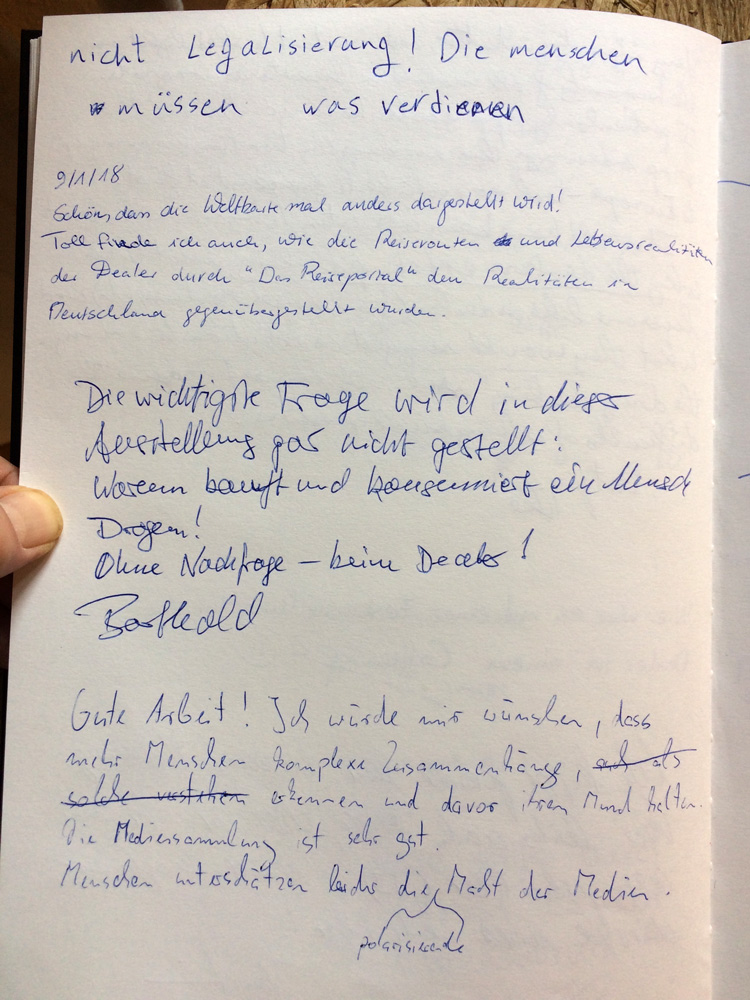 nicht Legalisierung! Die menschen
müssen was verdienen
9/1/18
Schön, dass die Weltkarte mal anders dargestellt wird!
Toll finde ich auch, wie die Reiserouten und Lebensrealitäten
der Dealer durch "Das Reiseportal" den Realitäten in
Deutschland gegenübergestellt wurden.
Die wichtigste Frage wird in dieser
Ausstellung gar nicht gestellt:
Warum kauft und konsumiert ein Mensch
Drogen!
Ohne Nachfrage – keine Dealer!
Berthold
Gute Arbeit! Ich würde mir wünschen, dass
mehr Menschen komplexe Zusammenhänge, und als
solche verstehen erkennen und davor ihren Mund halten.
Die Mediensammlung ist sehr gut.
Menschen unterschätzen leider die Macht der Medien.
polarisierende